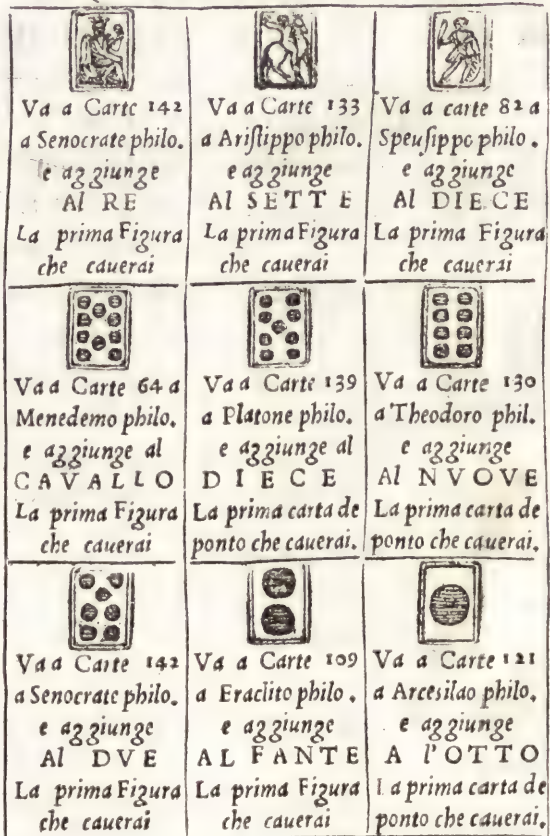 Va a Carte 142
a Senocrate philo.
e aggiunge
Al RE
La prima Figura
che cauerai
Va a Carte 133
a Ariſtippo philo.
e aggiunge
Al SETTE
La prima Figura
che cauerai
Va a carte 82 a
Speuſippo philo.
e aggiunge
Al DIECE
La prima Figura
che cauerai
Va a Carte 64 a
Menedemo philo.
e aggiunge al
CAVALLO
La prima Figura
che cauerai
Va a Carte 139
a Platone philo.
e aggiunge al
DIECE
La prima carta de
ponto che cauerai.
Va a Carte 130
a Theodoro phil.
e aggiunge
Al NVOVE
La prima carta de
ponto che cauerai.
Va a Carte 142
a Senocrate philo.
e aggiunge
Al DVE
La prima Figura
che cauerai
Va a Carte 109
a Eraclito philo.
e aggiunge
AL FANTE
La prima Figura
che cauerai
Va a Carte 121
a Arcesilao philo.
e aggiunge
A l'OTTO
La prima carta de
ponto che cauerai.